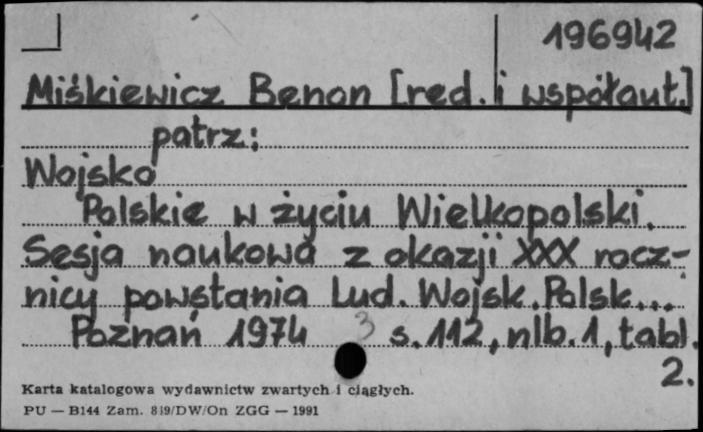 196942
Miśkiewicz Benon [red. i współaut.]
patrz:
Wojsko
Polskie w życiu Wielkopolski.
Sesja naukowa z okazji XXX rocz-
nicy powstania Lud. Wojsk. Polsk...
Poznań 1974 3 s. 112, nlb. 1, tabl.
2.
Karta katalogowa wydawnictw zwartych i ciągłych.
PU — B144 Zam. 819/DW/On ZGG — 1991